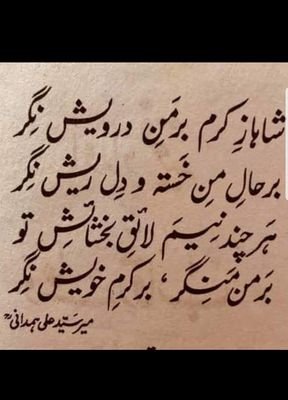 شاہا زِ کرم برمَنِ درویش نِگر
برحالِ منِ خَستہ و دِل ریش نِگر
ہَر چند نیَم لائقِ بخشائِش تو
بَر من مَنِگر، بر کرمِ خویش نِگر
میر سیّد علی ہمدانیؒ